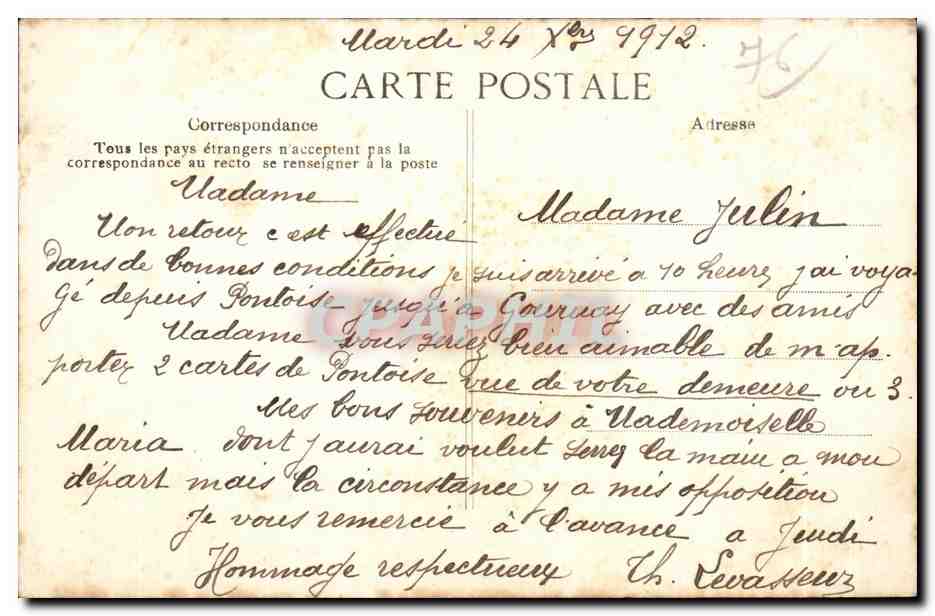 Mardi 24 Xbre 1912.
76
CARTE POSTALE
Correspondance
Adresse
Tous les pays étrangers n'acceptent pas la
correspondance au recto se renseigner à la poste
Madame
Madame Julin
Mon retour c'est effectué
dans de bonnes conditions je suis arrivé a 10 heures j'ai voya-
gé depuis Pontoise jusqu'à Gournay avec des amis
Madame vous seriez bien aimable de m'ap-
porter 2 cartes de Pontoise vue de votre demeure ou 3.
Mes bons souvenirs à Mademoiselle
Maria dont j'aurai voulut serrer la main a mon
départ mais la circonstance y a mis opposition
Je vous remercie à l'avance a Jeudi
Hommage respectueux Th. Levasseur
CPAPHIL